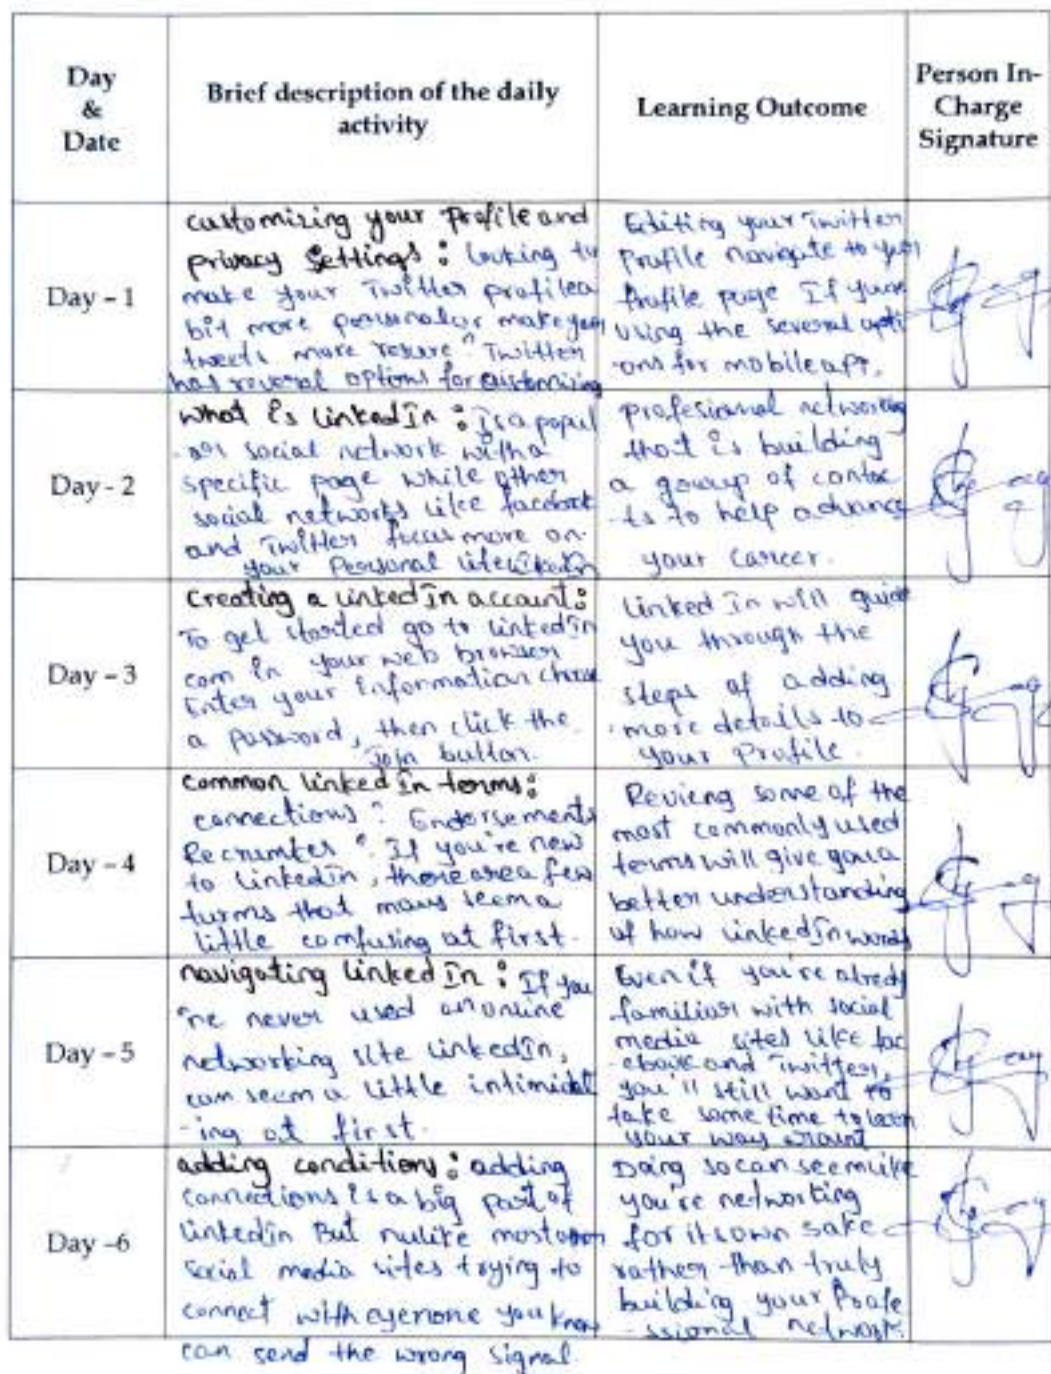 Day
&
Date
Brief description of the daily
activity
Learning Outcome
Person In-
Charge
Signature
Day - 1
customizing your Profile and
privacy Settings : looking to
make your Twitter profile a
bit more personal or make your
tweets more
Twitter
has several options for customizing
Editing your Twitter
Profile navigate to your
Profile page If your
using the several opti
ons for mobile
Day - 2
what is linkedIn : Is a popul
-ar social network with a
specific page while other
social networks like facebook
and Twitter focus more on
your Personal life linkedIn
profesional networking
that is building
a gouup of contac
-ts to help advance
your career.
Day - 3
creating a linkedIn account :
To get started go to linkedIn
com in your web browser
Enter your Information choose
a Password, then click the
Join button.
Linked In will guide
you through the
steps of adding
more details to
your Profile.
Day - 4
common linked In terms :
connections Endorsements
If you're new
to linkedin, there are a few
turms that seem a
little comfusing at first.
some of the
most commonly used
terms will give you a
better understanding
of how linkedIn
Day - 5
navigating linked In : If you
're never used an online
networking site linkedIn,
can seem a little intimidat
-ing at first.
Even if you're already
familiar with social
media sites like fac
-ebook and Twitter,
you'll still want to
take some time to learn
your way
Day -6
adding conditions : adding
connections is a big part of
linkedin But nulike most
social media sites trying to
connect with you know
can send the wrong signal.
Doing so can seem like
you're networking
for its own sake
rather than truly
building your Profe
-ssional network.